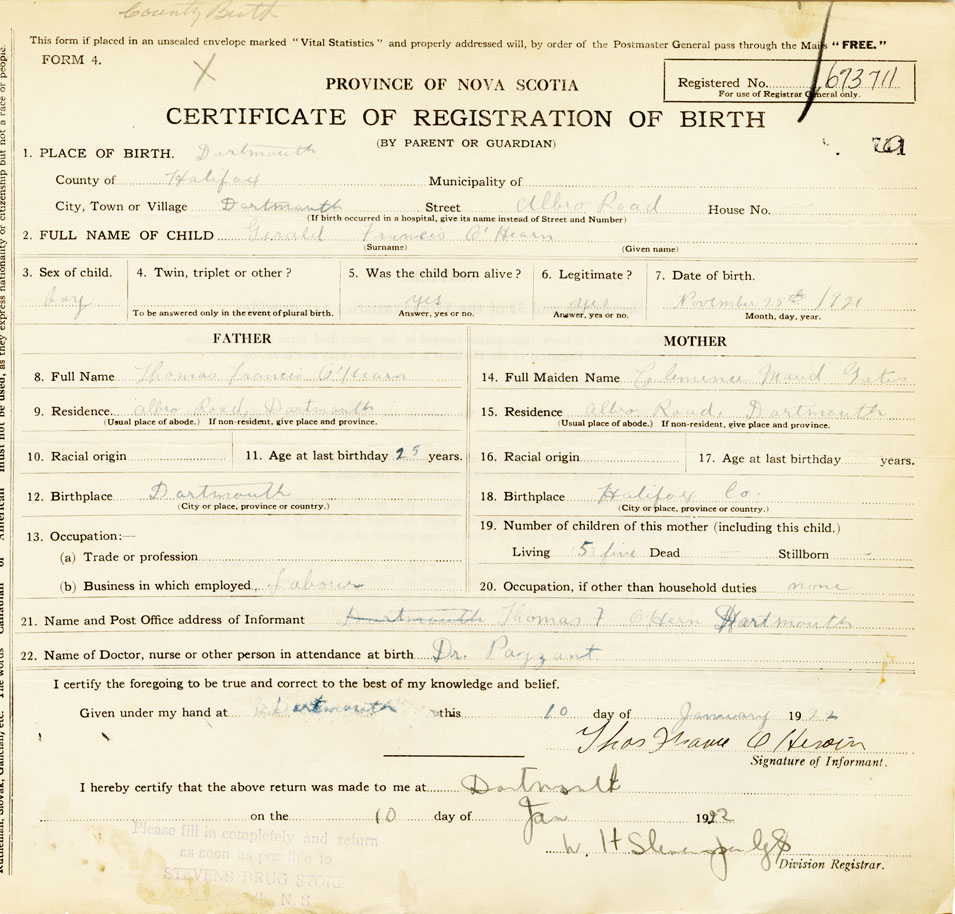 County Birth
This form if placed in an unsealed envelope marked "Vital Statistics" and properly addressed will, by order of the Postmaster General pass through the Mails "FREE."
FORM 4.
X
PROVINCE OF NOVA SCOTIA
Registered No. 673711
For use of Registrar General only.
CERTIFICATE OF REGISTRATION OF BIRTH
(BY PARENT OR GUARDIAN)
1. PLACE OF BIRTH. Dartmouth
County of Halifax Municipality of
City, Town or Village Dartmouth Street Albro Road House No.
(If birth occurred in a hospital, give its name instead of Street and Number)
2. FULL NAME OF CHILD Gerald Francis O'Hearn
(Surname) (Given name)
3. Sex of child. 4. Twin, triplet or other? 5. Was the child born alive? 6. Legitimate? 7. Date of birth.
boy yes yes November 25th /1921
To be answered only in the event of plural birth. Answer, yes or no. Answer, yes or no. Month, day, year.
FATHER MOTHER
8. Full Name Thomas Francis O'Hearn 14. Full Maiden Name Clemence Maud Gates
9. Residence. Albro Road, Dartmouth 15. Residence Albro Road, Dartmouth
(Usual place of abode.) If non-resident, give place and province. (Usual place of abode.) If non-resident, give place and province.
10. Racial origin 11. Age at last birthday 25 years. 16. Racial origin 17. Age at last birthday years.
12. Birthplace Dartmouth 18. Birthplace Halifax Co.
(City or place, province or country.) (City or place, province or country.)
13. Occupation:— 19. Number of children of this mother (including this child.)
(a) Trade or profession Living 5 five Dead — Stillborn —
(b) Business in which employed Labour 20. Occupation, if other than household duties none
21. Name and Post Office address of Informant Dartmouth Thomas F O'Hern Dartmouth
22. Name of Doctor, nurse or other person in attendance at birth Dr. Payzant
I certify the foregoing to be true and correct to the best of my knowledge and belief.
Given under my hand at Dartmouth this 10 day of January 1922
Thos O
Signature of Informant.
I hereby certify that the above return was made to me at Dartmouth
on the 10 day of Jan 1922
W. H
Division Registrar.
Please fill in completely and return
as soon as possible to
STEVENS DRUG STORE
N. S.
Ruthenian, Slovak, Galician, etc. The words Canadian or American must not be used, as they express nationality or citizenship but not a race or people.